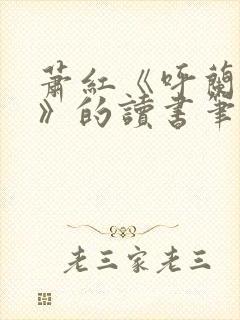 蕭紅《呼蘭
》的讀書筆
老三家老三